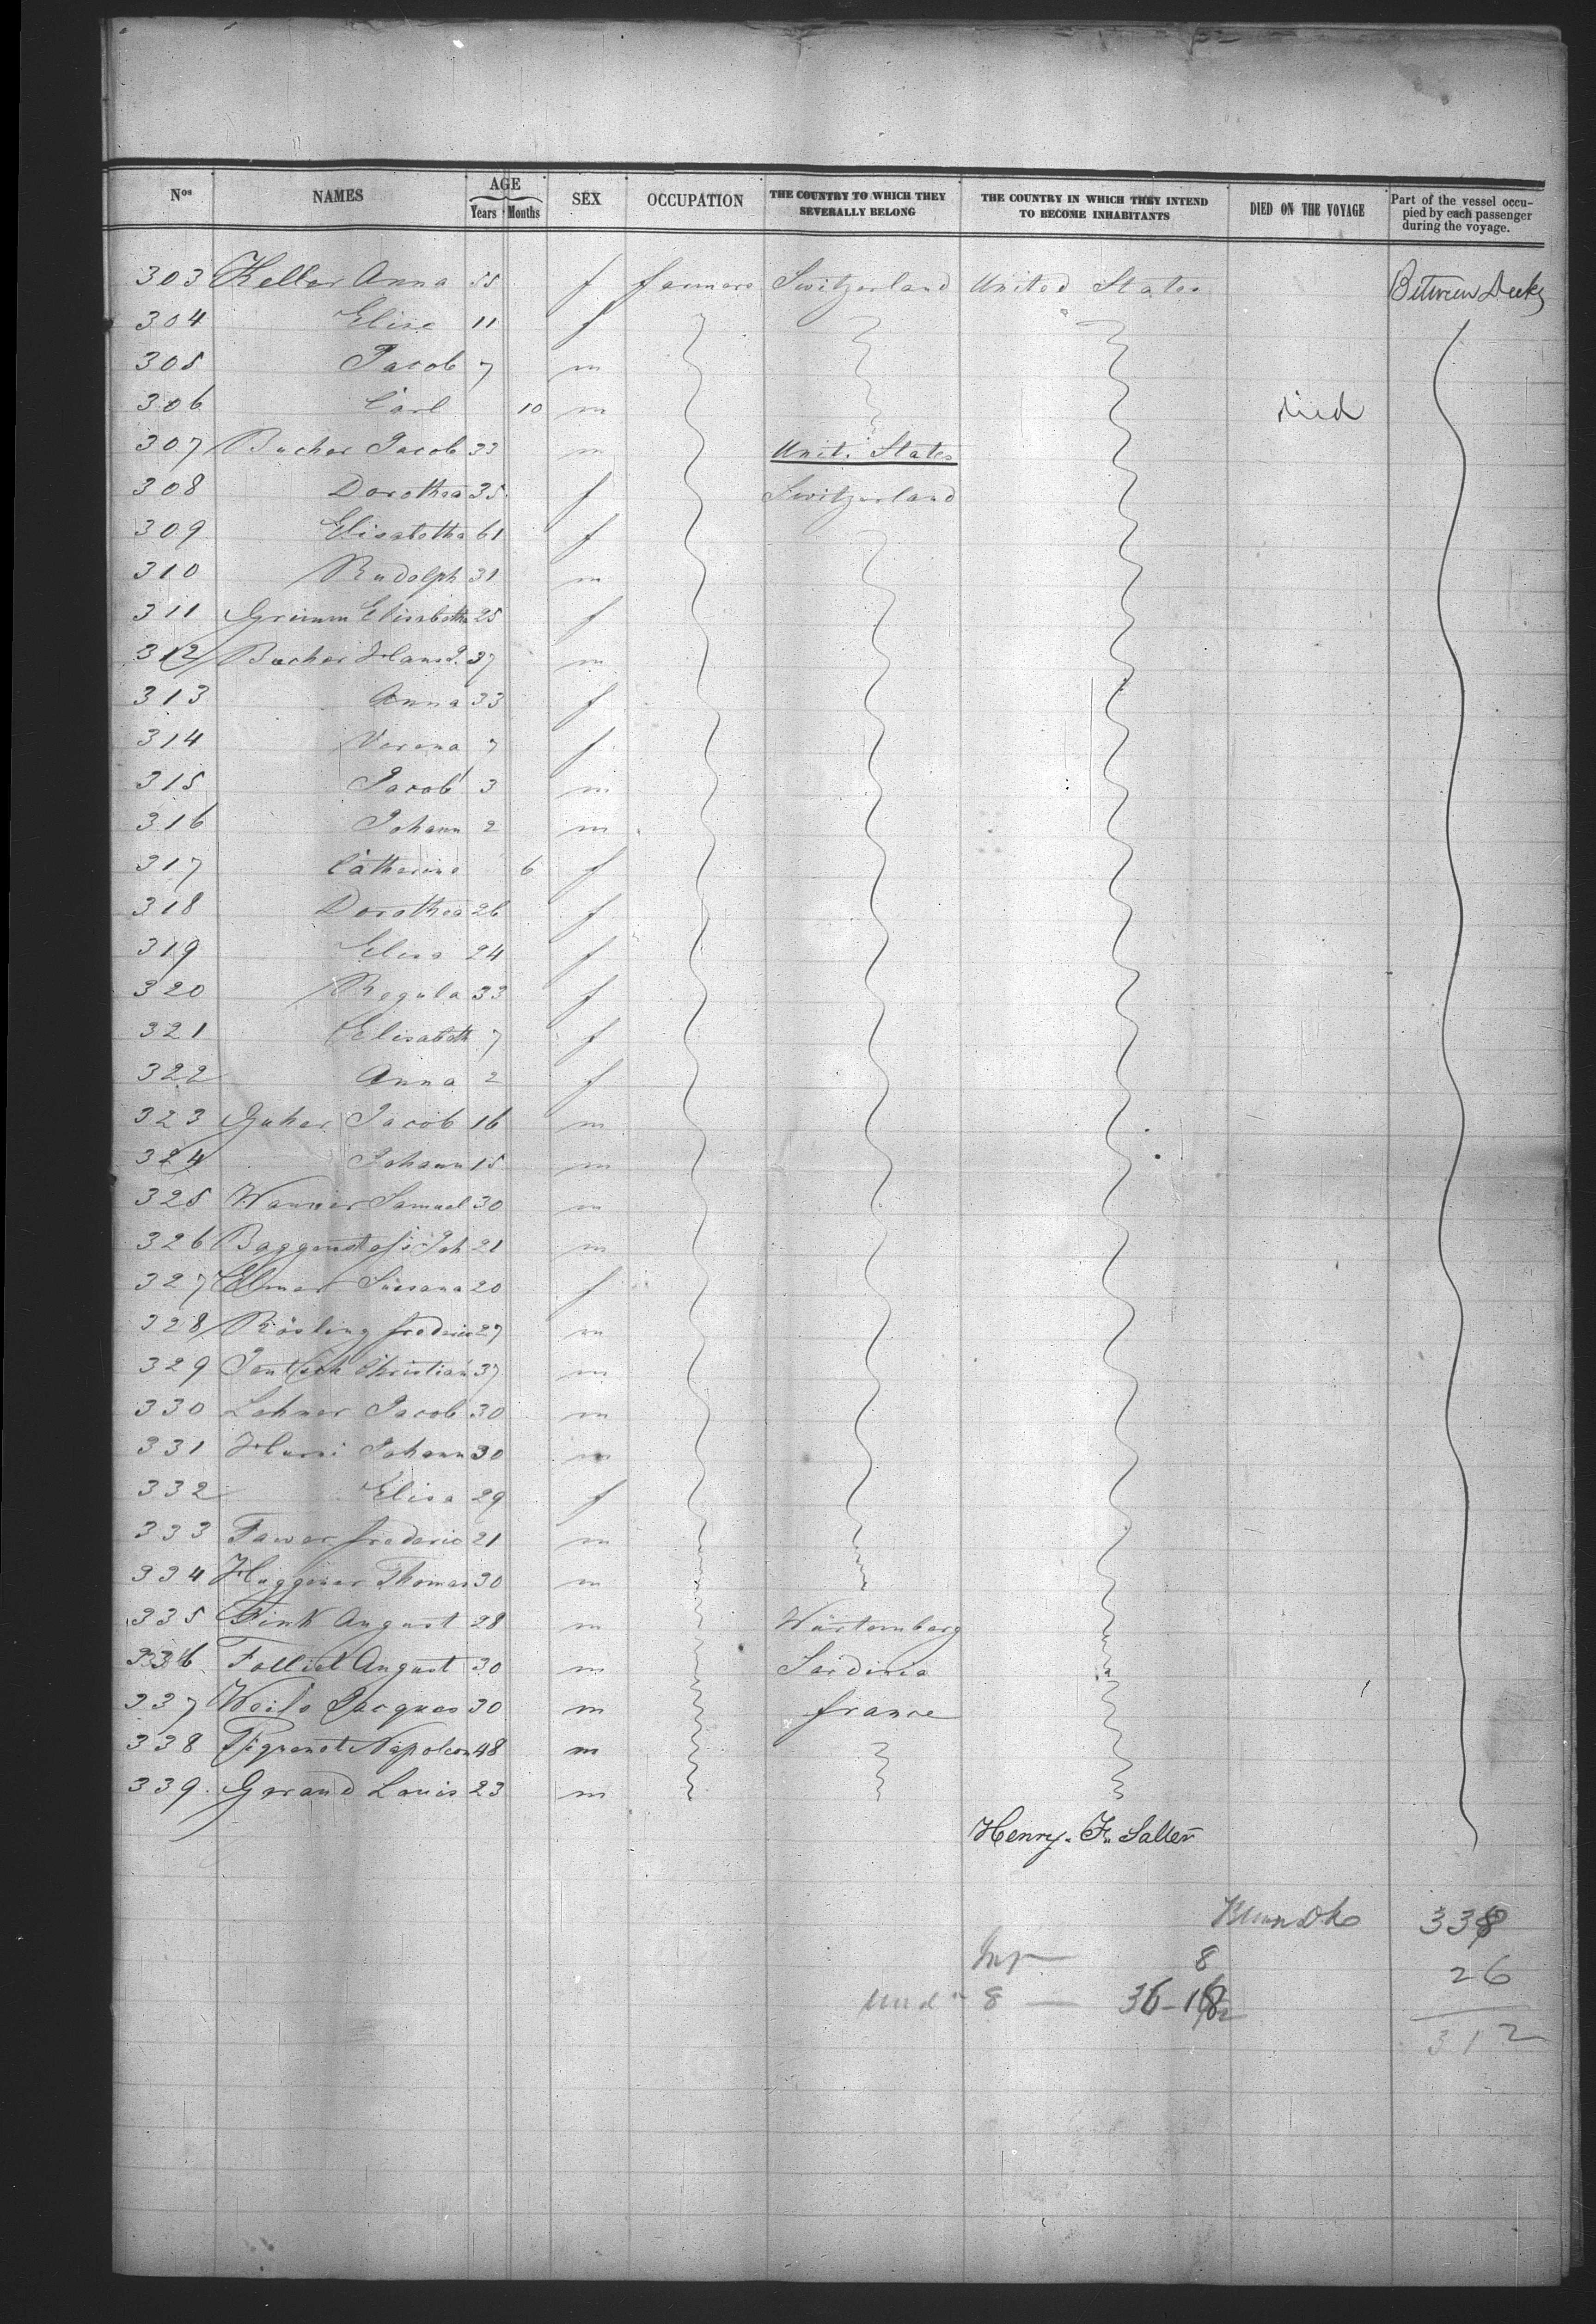 Nos NAMES AGE Years Months SEX OCCUPATION THE COUNTRY TO WHICH THEY SEVERALLY BELONG THE COUNTRY IN WHICH THEY INTEND TO BECOME INHABITANTS DIED ON THE VOYAGE Part of the vessel occupied by each passenger during the voyage.
303 Keller Anna 55 f farmers Switzerland United States Between Decks
304 Elise 11 f
305 Jacob 7 m
306 Carl 10 m died
307 Bucher Jacob 33 m Unit. States
308 Dorothea 35 f Switzerland
309 Elisabetha 61 f
310 Rudolph 31 m
311 Grimm Elisabetha 25 f
312 Bucher Hans J. 37 m
313 Anna 33 f
314 Verena 7 f
315 Jacob 3 m
316 Johann 2 m
317 Catherine 6 f
318 Dorothea 26 f
319 Elisa 24 f
320 Regula 33 f
321 Elisabeth 7 f
322 Anna 2 f
323 Guher Jacob 16 m
324 Johann 15 m
325 Wanner Samuel 30 m
326 Joh 21 m
327 Elmer Susana 20 f
328 Rösling frederic 27 m
329 Christian 37 m
330 Lehner Jacob 30 m
331 Hurni Johann 30 m
332 Elisa 29 f
333 Fawer frederic 21 m
334 Huggener Thomas 30 m
335 Fink August 28 m Würtemberg
336 Folliet August 30 m Sardinia
337 Weils Jacques 30 m france
338 Pigrenet Napoleon 48 m
339. Gerand Louis 23 m
Henry. F. Salter
338
8
26
8
312